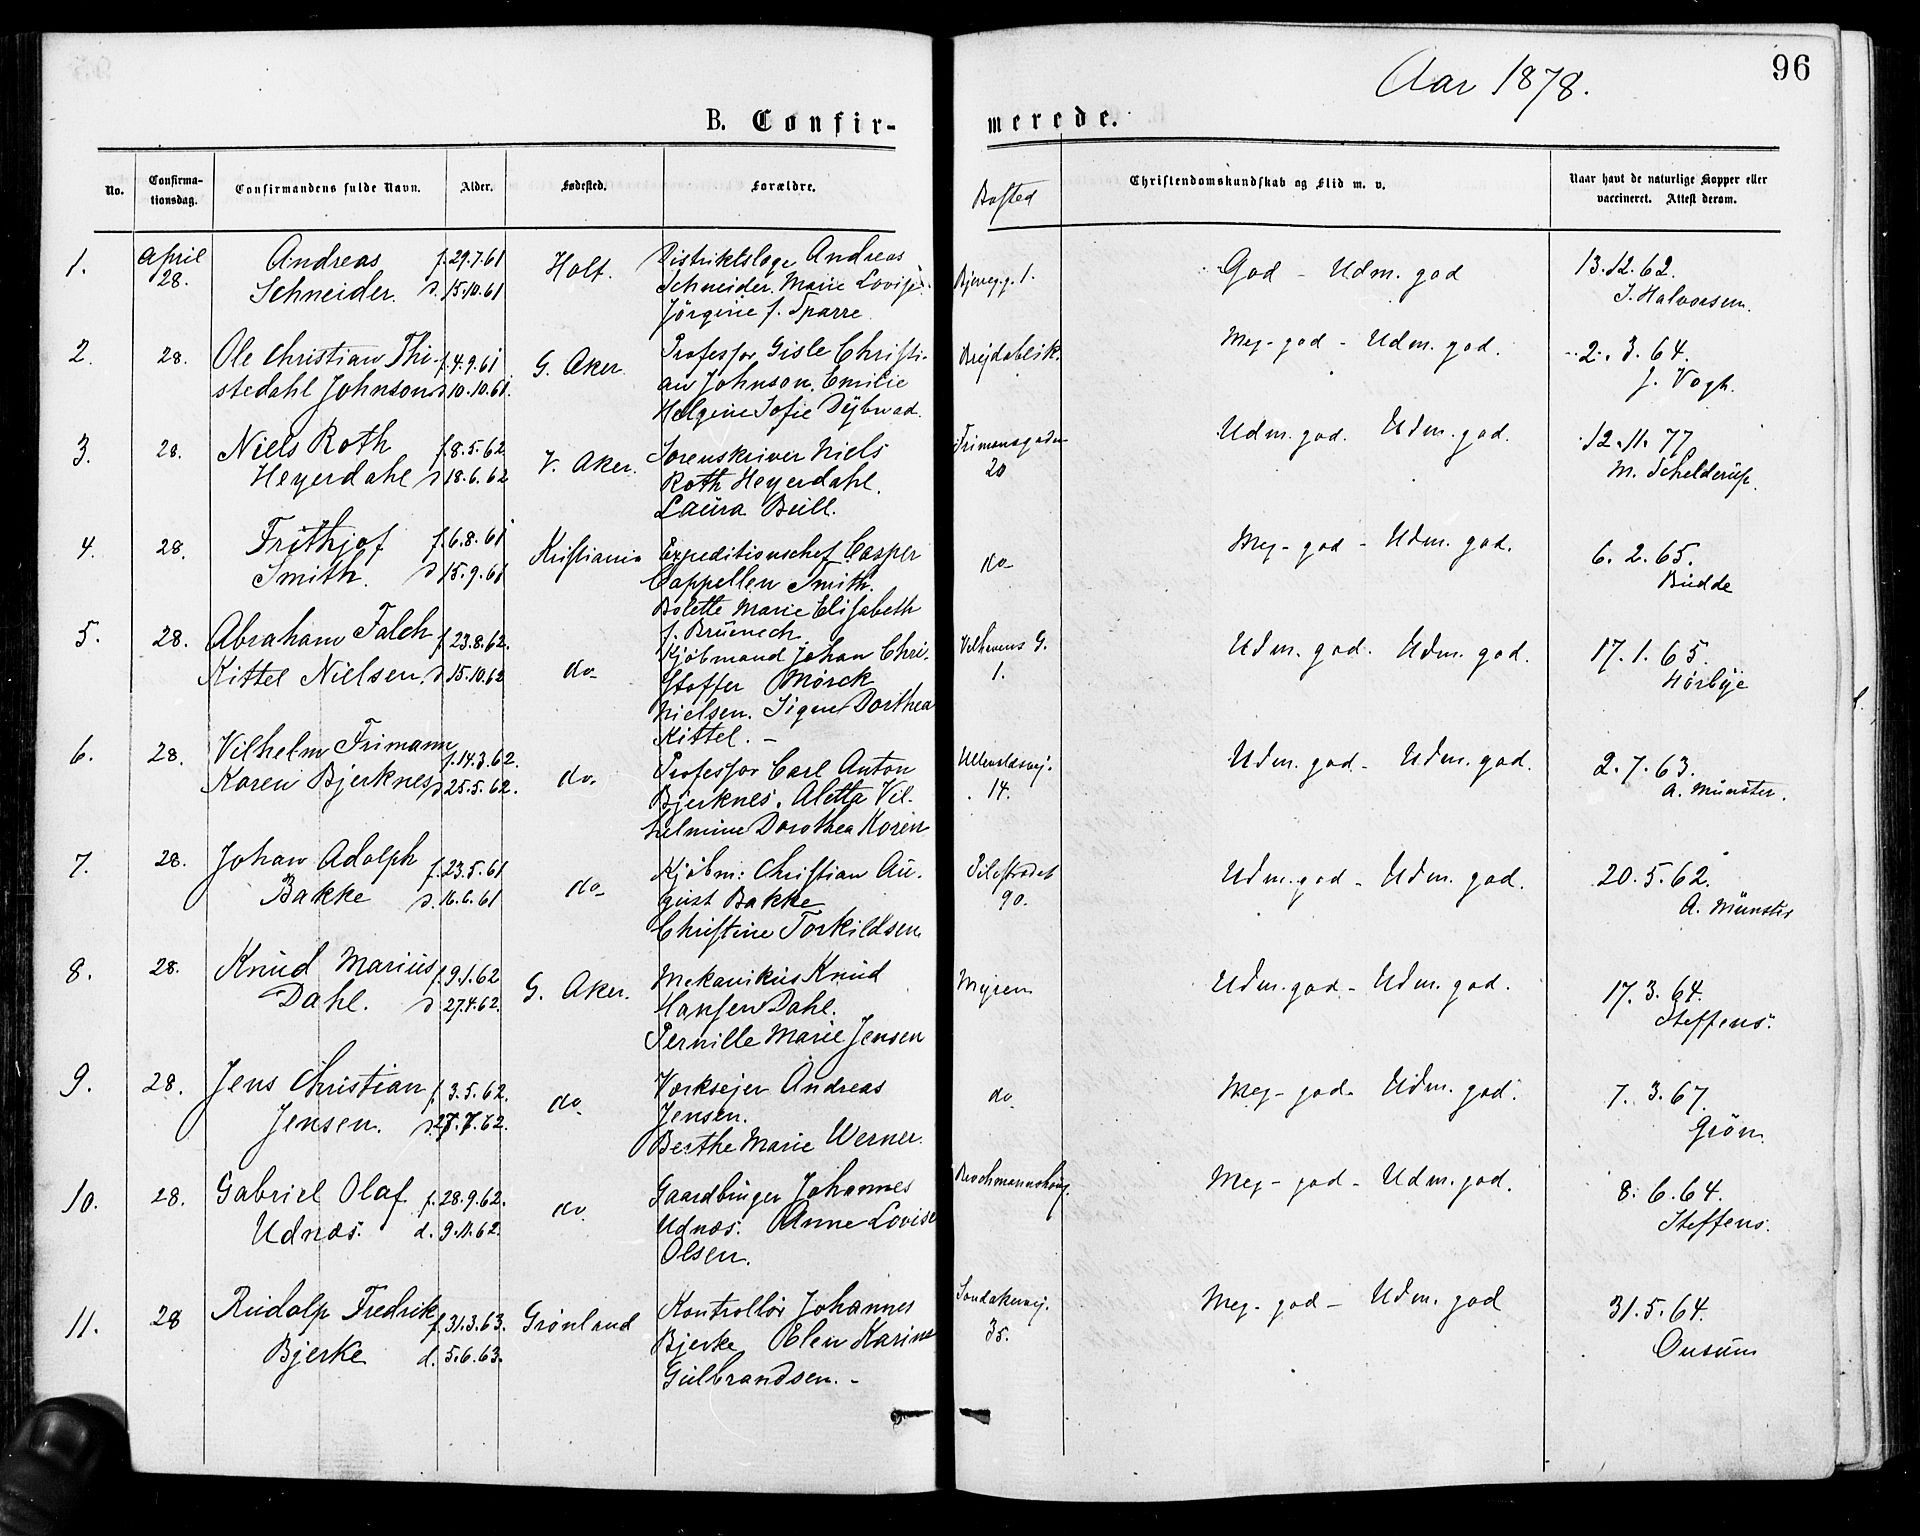 Aar 1878.
96
B. Confirmerede.
No.
Confirmationsdag.
Confirmandens fulde Navn.
Alder.
Fødested.
Forældre.
Bosted
Christendomskundskab og Flid m. v.
Naar havt de naturlige Kopper eller
vaccineret. Attest derom.
1.
April
28.
Andreas
Schneider.
f. 29.7.61
d. 15.10.61
Holt.
Distriktslæge Andreas
Schneider. Marie Lovise
Jörgine f. Sparre.
Bjeregg. 1.
God - Udm. god
13.12.62.
J. Halvorsen.
2.
28.
Ole Christian Thi-
stedahl Johnson
f. 4.9.61
d. 10.10.61.
G. Aker.
Professor Gisle Christi-
an Johnson. Emilie
Helgine Sofie Dÿbwad.
Brejdablik.
Meg. god - Udm. god.
2. 3. 64.
J. Vogt.
3.
28.
Niels Roth
Heyerdahl
f. 8.5.62
d. 18.6.62
V. Aker.
Sorenskriver Niels
Roth Heyerdahl.
Laura Bull.
Frimansgaden
20
Udm. god. Udm. god.
12. 11. 77
M. Schelderup.
4.
28.
Frithjof
Smith.
f. 6.8.61
d. 15.9.61
Kristiania
Expeditionschef Casper
Cappellen Smith.
Bolette Marie Elisabeth
f. Brünech
do
Meg. god - Udm. god.
6. 2. 65.
Budde
5.
28.
Abraham Falch
Kittel Nielsen.
f. 23.8.62.
d. 15.10.62
do
Kjöbmand Johan Chri-
stoffer Mörck
Nielsen. Signe Dorthea
Kittel. -
G.
1.
Udm. god. Udm. god.
17. 1. 65.
Hörbÿe
6.
28.
Vilhelm Frimann
Koren Bjerknes
f. 14.3.62.
d. 25.5.62.
do.
Professor Carl Anton
Bjerknes. Aletta Vil-
helmine Dorothea Koren
Ullevoldsvej.
14.
Udm. god. - Udm. god.
2. 7. 63.
A. Münster.
7.
28.
Johan Adolph
Bakke
f. 23.5.61
d. 16.6.61
do
Kjöbm: Christian Au-
gust Bakke
Christine Torkildsen.
Pilestrædet
90.
Udm. god - Udm. god.
20. 5. 62.
A. Münster
8.
28.
Knud Marius
Dahl.
f. 9.1.62
d. 27.4.62.
G. Aker.
Mekanikus Knud
Hansen Dahl.
Pernille Marie Jensen
Myren
Udm. god - Udm. god.
17. 3. 64.
Steffens.
9.
28.
Jens Christian
Jensen.
f. 3.5.62.
d. 27.7.62.
do
Værksejer Andreas
Jensen.
Berthe Marie Werner.
do
Meg. god. Udm. god.
7. 3. 67.
Grön
10.
28.
Gabriel Olaf
Udnæs.
f. 28.9.62.
d. 9.11.62.
do
Gaardbruger Johannes
Udnæs. Anne Lovise
Olsen.
Meg. god - Udm. god.
8. 6. 64.
Steffens.
11.
28
Rudolp Fredrik
Bjerke
f. 31.3.63.
d. 5.6.63.
Grönland
Kontrollör Johannes
Bjerke. Elen Karine
Gulbrandsen. -
Sandakervej.
35.
Meg. god - Udm. god
31. 5. 64.
Ousum